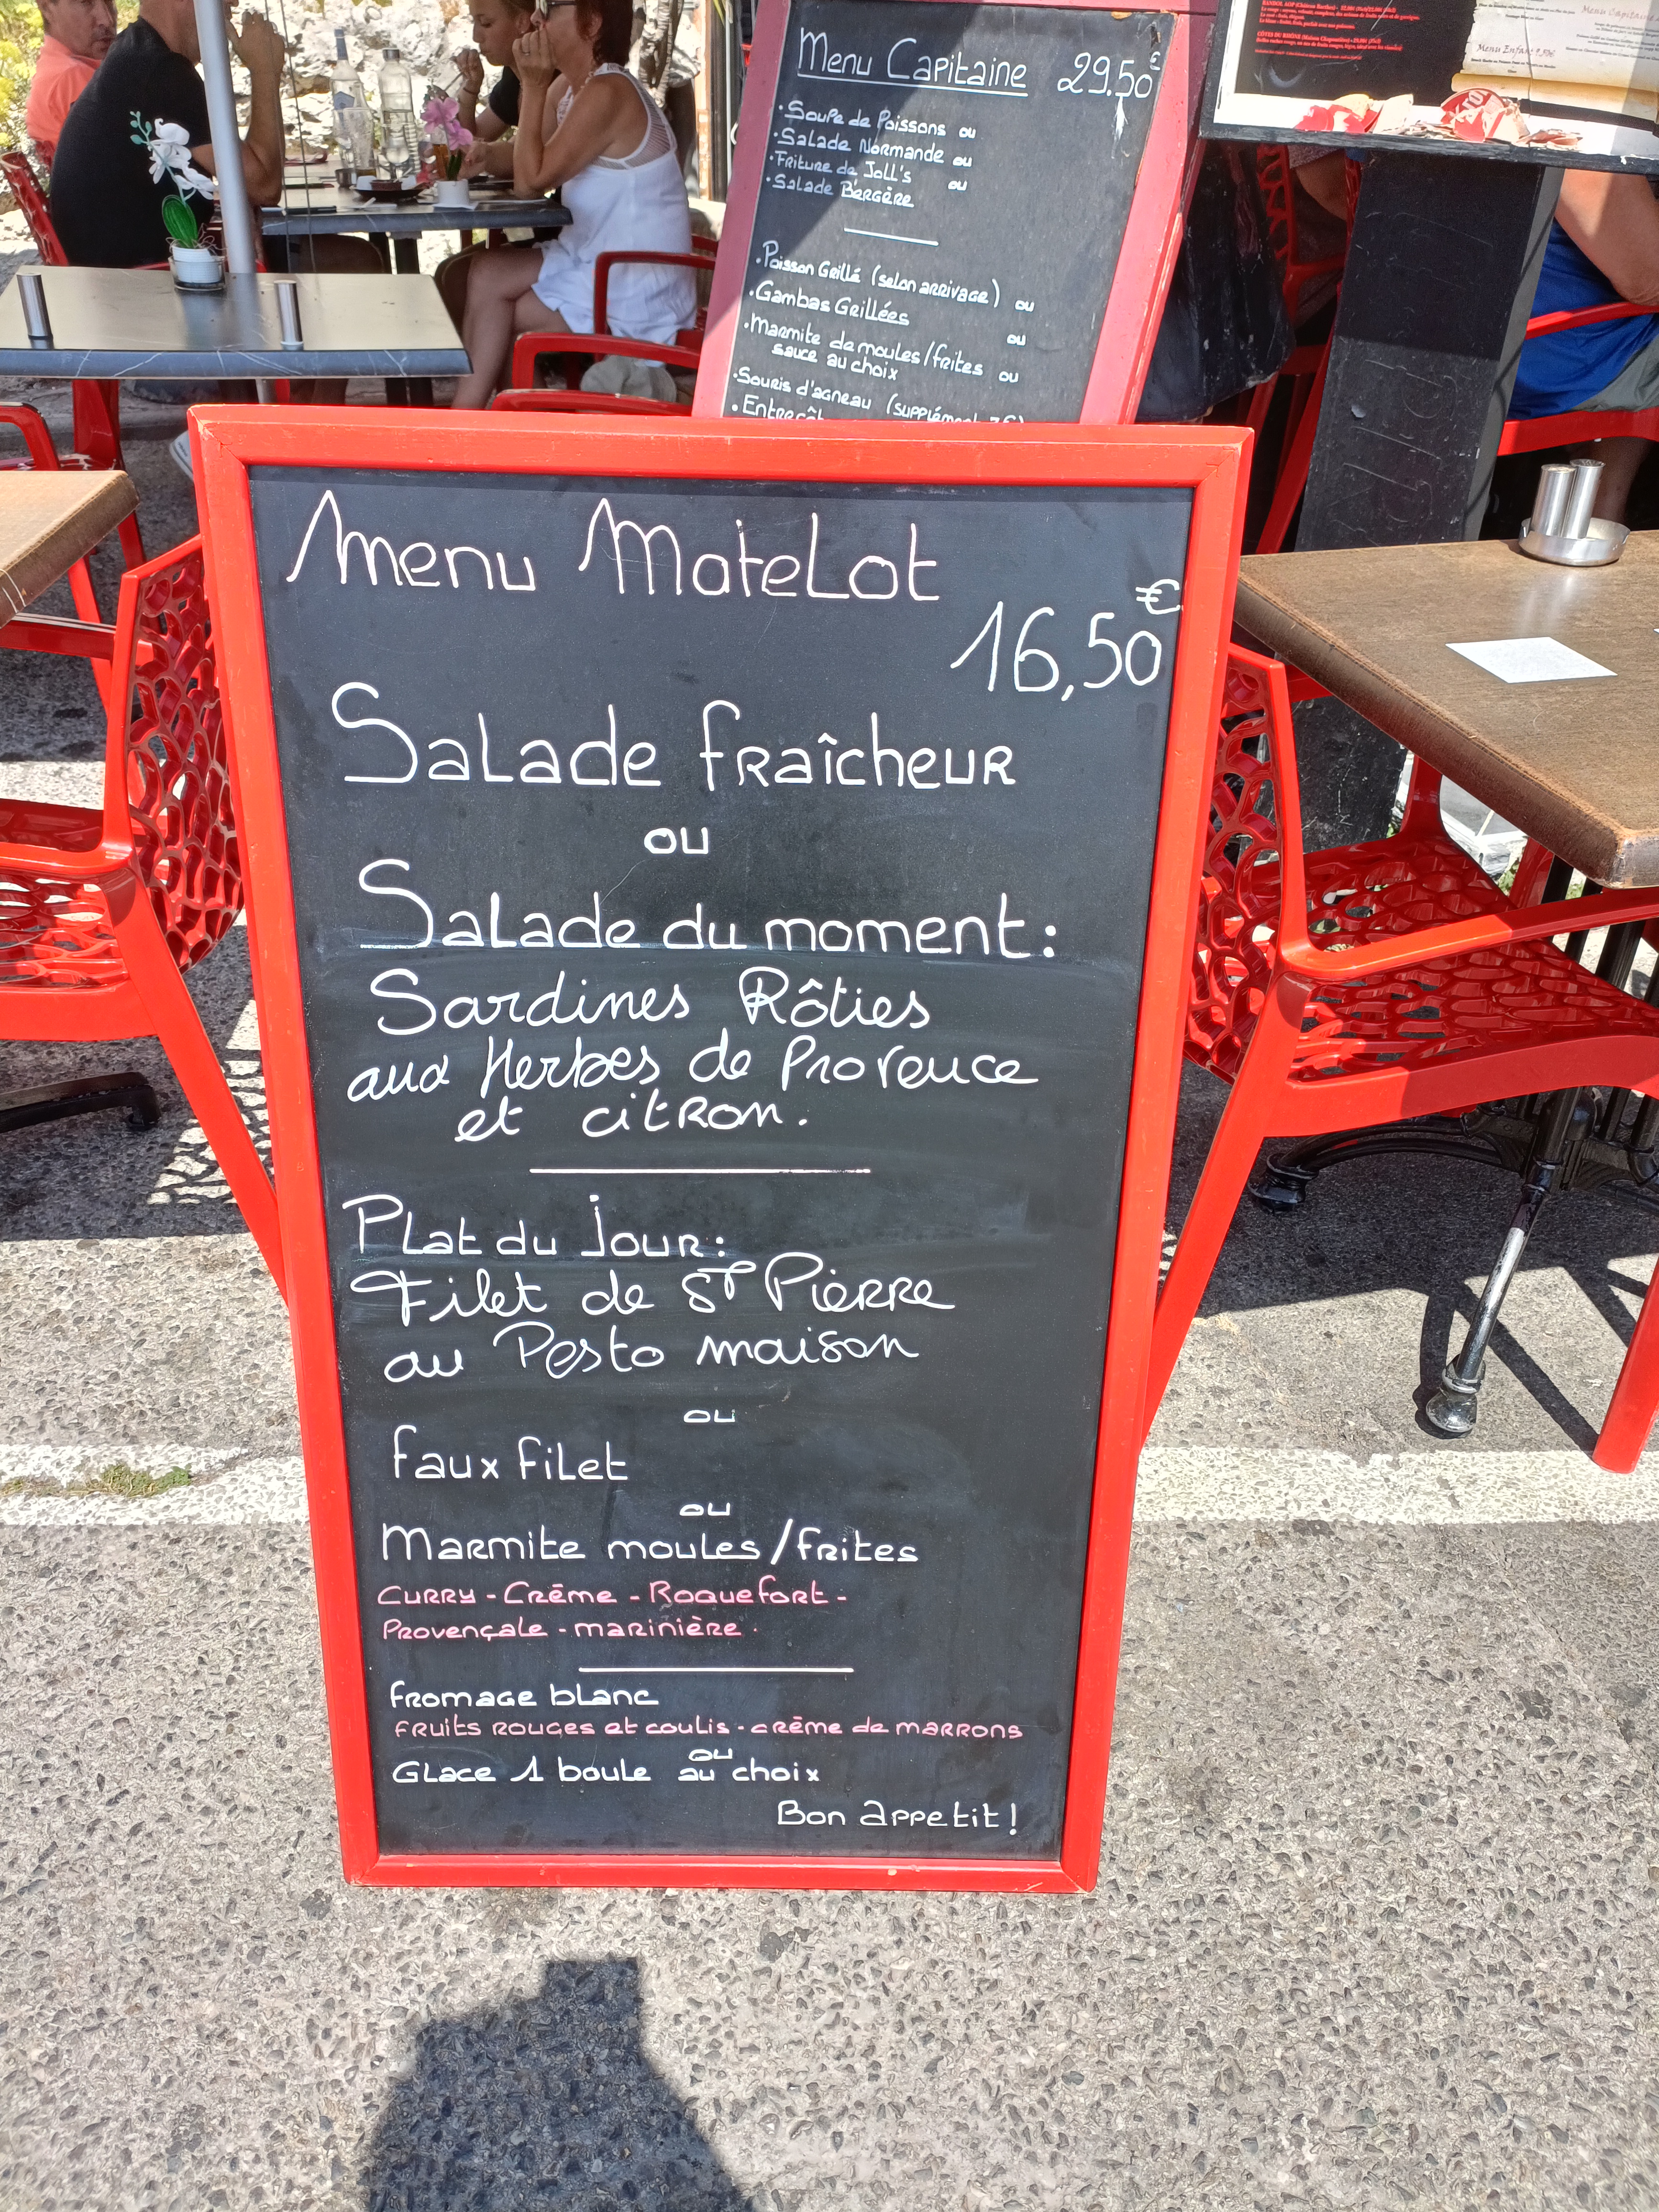 Menu Capitaine 29.50€
·Soupe de Poissons ou
·Salade Normande ou
·Friture de Joll's ou
·Salade Bergère
·Poisson Grillé (selon arrivage) ou
·Gambas Grillées ou
·Marmite de moules/frites
sauce au choix ou
·Souris d'agneau (supplément
Menu Enfant
Menu Matelot
16,50€
Salade fraîcheur
ou
Salade du moment:
Sardines Rôties
aux Herbes de Provence
et citron.
Plat du jour:
Filet de St Pierre
au Pesto maison
ou
faux filet
ou
Marmite moules/frites
Curry - Crème - Roquefort -
Provençale - marinière.
fromage blanc
fruits rouges et coulis - crème de marrons
ou
Glace 1 boule au choix
Bon appetit!